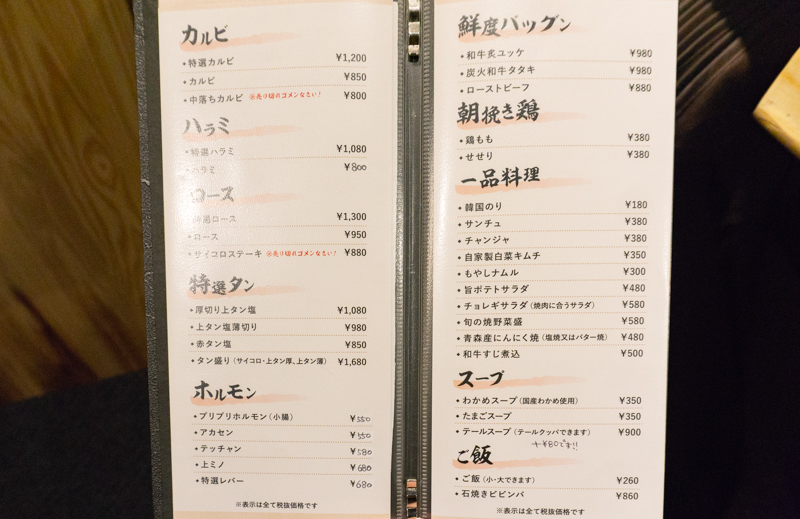 カルビ
・特選カルビ ¥1,200
・カルビ ¥850
・中落ちカルビ ※売り切れゴメンなさい! ¥800
ハラミ
・特選ハラミ ¥1,080
・ハラミ ¥800
ロース
・特選ロース ¥1,300
・ロース ¥950
・サイコロステーキ ※売り切れゴメンなさい! ¥880
特選タン
・厚切り上タン塩 ¥1,080
・上タン塩薄切り ¥980
・赤タン塩 ¥850
・タン盛り(サイコロ・上タン厚、上タン薄) ¥1,680
ホルモン
・プリプリホルモン(小腸) ¥550
・アカセン ¥550
・テッチャン ¥580
・上ミノ ¥680
・特選レバー ¥680
※表示は全て税抜価格です
鮮度バツグン
・和牛炙ユッケ ¥980
・炭火和牛タタキ ¥980
・ローストビーフ ¥880
朝挽き鶏
・鶏もも ¥380
・せせり ¥380
一品料理
・韓国のり ¥180
・サンチュ ¥380
・チャンジャ ¥380
・自家製白菜キムチ ¥350
・もやしナムル ¥300
・旨ポテトサラダ ¥480
・チョレギサラダ(焼肉に合うサラダ) ¥580
・旬の焼野菜盛 ¥580
・青森産にんにく焼(塩焼又はバター焼) ¥480
・和牛すじ煮込 ¥500
スープ
・わかめスープ(国産わかめ使用) ¥350
・たまごスープ ¥350
・テールスープ(テールクッパできます) ¥900
+¥80です!!
ご飯
・ご飯(小・大できます) ¥260
・石焼きビビンバ ¥860
※表示は全て税抜価格です